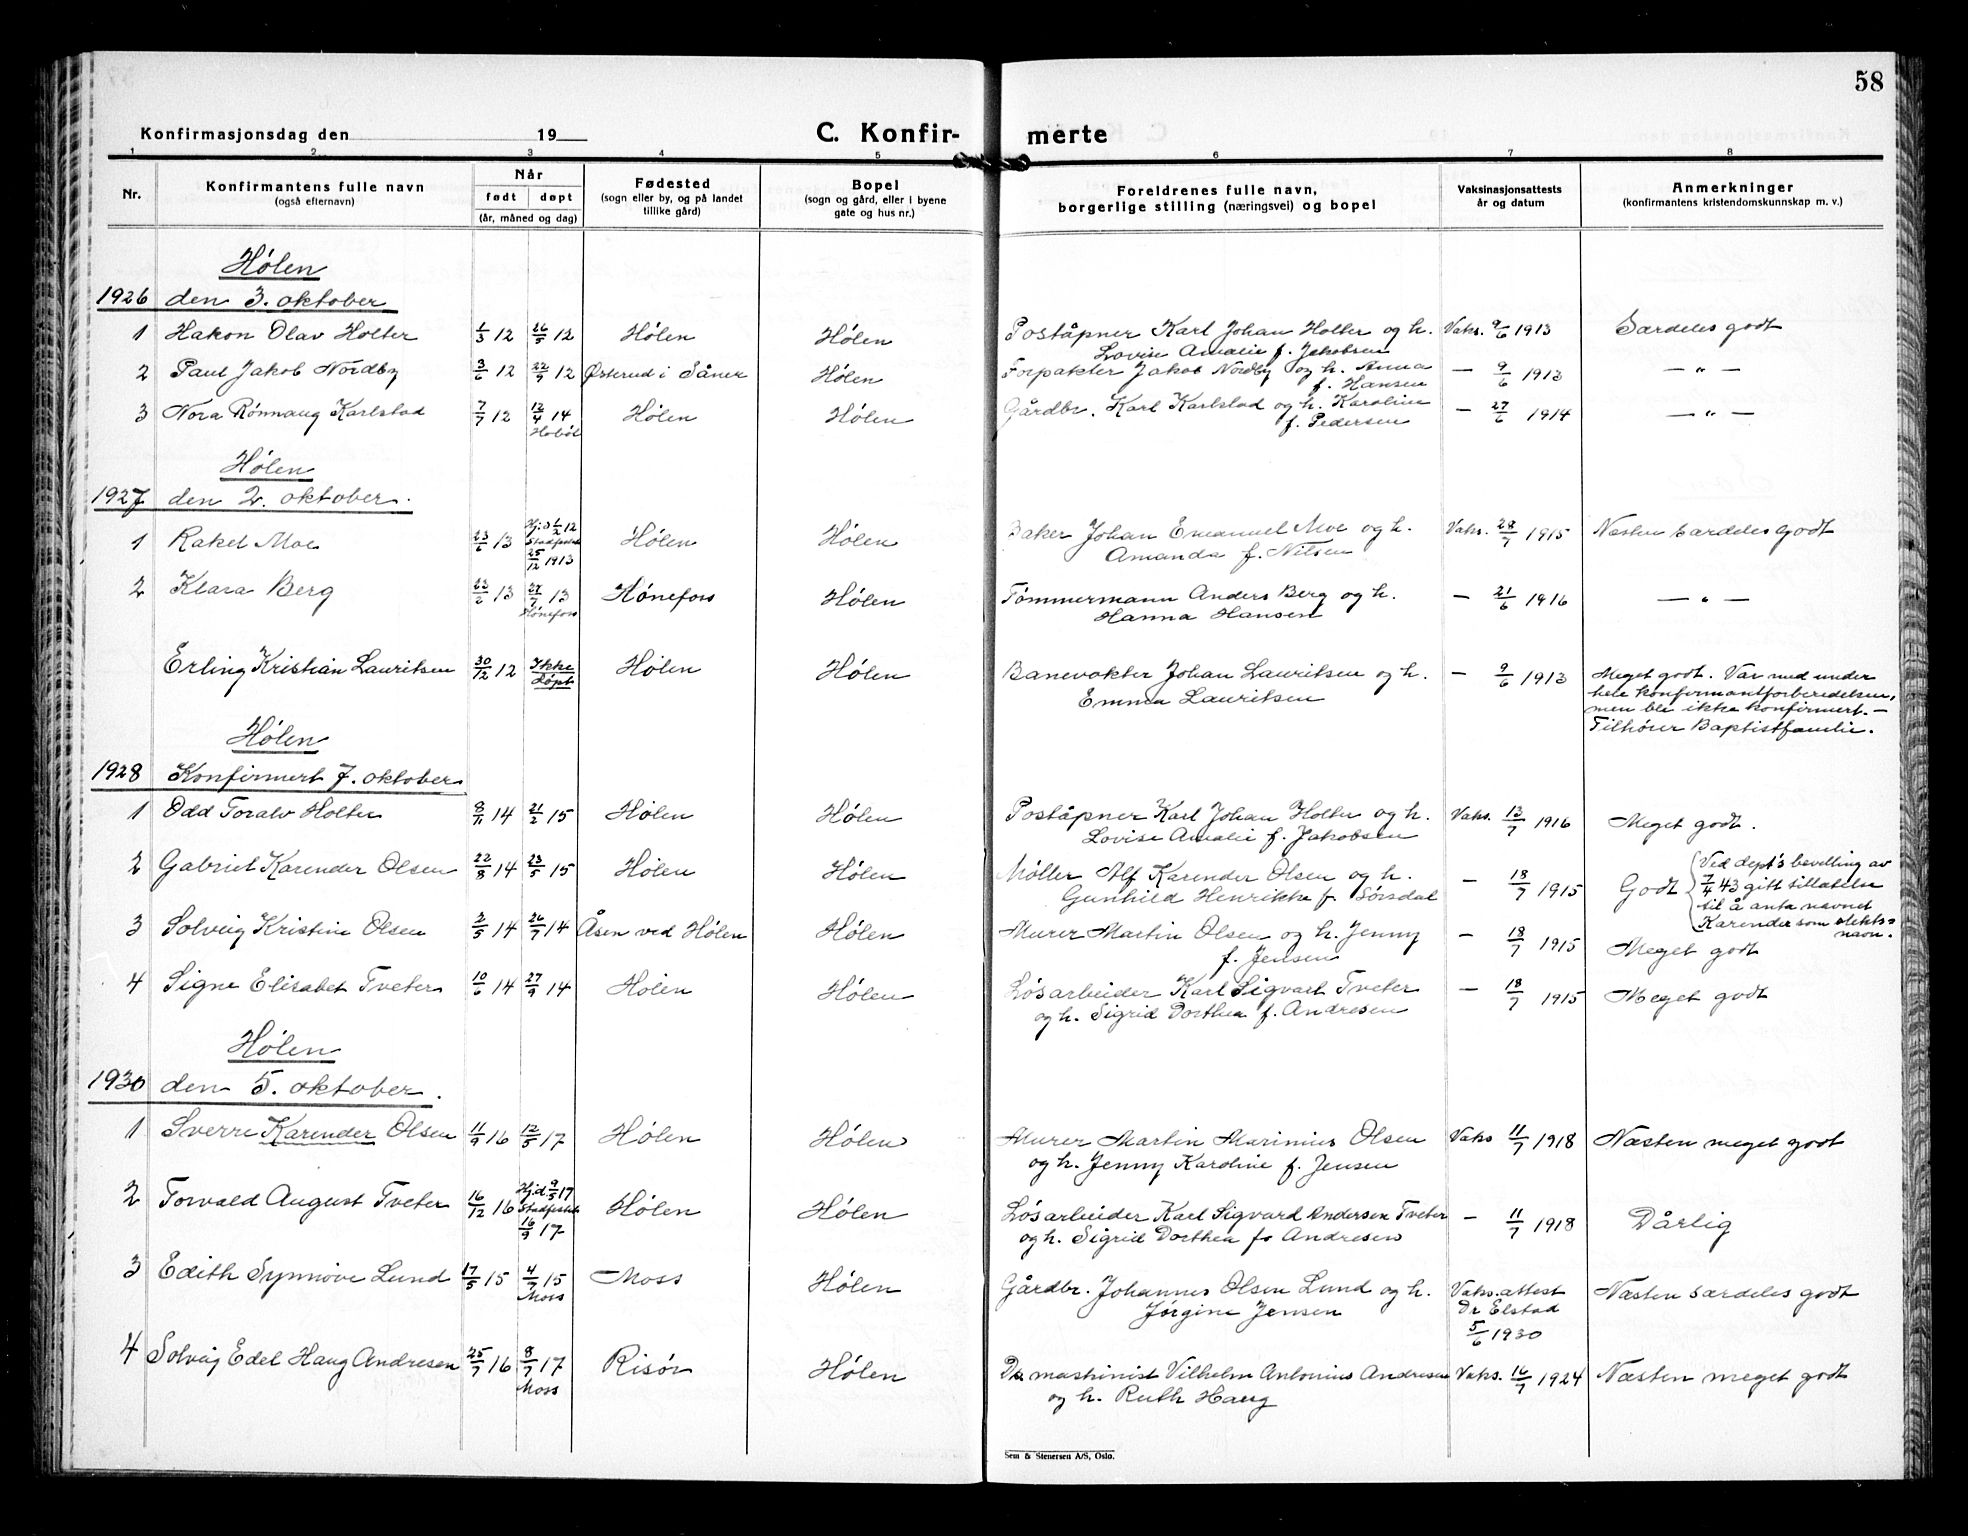 58
Konfirmasjonsdag den 19
C. Konfir- merte
1 2 3 4 5 6 7 8
Nr.
Konfirmantens fulle navn
(også efternavn)
Når
født døpt
(år, måned og dag)
Fødested
(sogn eller by, og på landet
tillike gård)
Bopel
(sogn og gård, eller i byene
gate og hus nr.)
Foreldrenes fulle navn,
borgerlige stilling (næringsvei) og bopel
Vaksinasjonsattests
år og datum
Anmerkninger
(konfirmantens kristendomskunnskap m. v.)
Hølen
1926 den 3. oktober
1 Hakon Olav Holter 1/3 12 26/5 12 Hølen Hølen Poståpner Karl Johan Holter og h. Vaks. 9/6 1913 Særdeles godt
Lovise Amalie f. Jakobsen
2 Paul Jakob Nordby 3/6 12 22/9 12 Østerud i Såner Hølen Forpakter Jakob Nordby og h. Anna — 9/6 1913 — " —
f. Hansen
3 Nora Rønnaug Karlstad 7/7 12 12/4 14 Hølen Hølen Gårdbr. Karl Karlstad og h. Karoline — 27/6 1914 — " —
Hobøl
f. Pedersen
Hølen
1927 den 2. oktober.
1 Rakel Moe 23/6 13 Hj.d 1/2 12 Hølen Hølen Baker Johan Emanuel Moe og h. Vaks. 28/7 1915 Næsten særdeles godt
Stadfestet
25/12 1913
Amanda f. Nilsen
2 Klara Berg 23/2 13 27/7 13 Hønefoss Hølen Tømmermann Anders Berg og h. — 21/6 1916 — " —
Hønefoss
Hanna Hansen
Erling Kristian Lauritsen 30/12 12 Ikke døpt Hølen Hølen Banevokter Johan Lauritsen og h. — 9/6 1913 Meget godt. Var med under
Emma Lauritsen
hele konfirmantforberedelsen,
men ble ikke konfirmert. —
Tilhører Baptistfamilie.
Hølen
1928 Konfirmert 7. oktober
1 Odd Toralv Holter 8/11 14 21/2 15 Hølen Hølen Poståpner Karl Johan Holter og h. Vaks. 13/7 1916 Meget godt.
Lovise Amalie f. Jakobsen
2 Gabriel Karender Olsen 22/8 14 23/5 15 Hølen Hølen Møller Alf Karender Olsen og h. — 18/7 1915 Godt
Gunhild Henrikke f. Sørsdal
Ved dept's bevilling av
7/4 43 gitt tillatelse
til å anta navnet
Karender som slekts-
navn.
3 Solveig Kristine Olsen 2/5 14 26/7 14 Åsen ved Hølen Hølen Murer Martin Olsen og h. Jenny — 18/7 1915 Meget godt
f. Jensen
4 Signe Elisabet Tveter 10/6 14 27/9 14 Hølen Hølen Løsarbeider Karl Sigvart Tveter — 18/7 1915 Meget godt
og h. Sigrid Dorthea f. Andresen
Hølen
1930 den 5. oktober.
1 Sverre Karender Olsen 11/9 16 12/5 17 Hølen Hølen Murer Martin Marinius Olsen Vaks 11/7 1918 Næsten meget godt
og h. Jenny Karoline f. Jensen
2 Torvald August Tveter 16/12 16 Hj.d. 9/5 17 Hølen Hølen Løsarbeider Karl Sigvard Andersen Tveter — 11/7 1918 Dårlig
Stadfestet
16/9 17
og h. Sigrid Dorthea f. Andresen
3 Edith Synnøve Lund 17/5 15 4/7 15 Moss Hølen Gårdbr. Johannes Olsen Lund og h. Vaks.attest Næsten særdeles godt
Moss
Jørgine Jensen
Dr Elstad
5/6 1930
4 Solveig Edel Haug Andresen 25/7 16 8/7 17 Risør Hølen Ds maskinist Vilhelm Antonius Andresen Vaks. 16/7 1924 Næsten meget godt
Moss
og h. Ruth Haug
Sem & Stenersen A/S, Oslo.